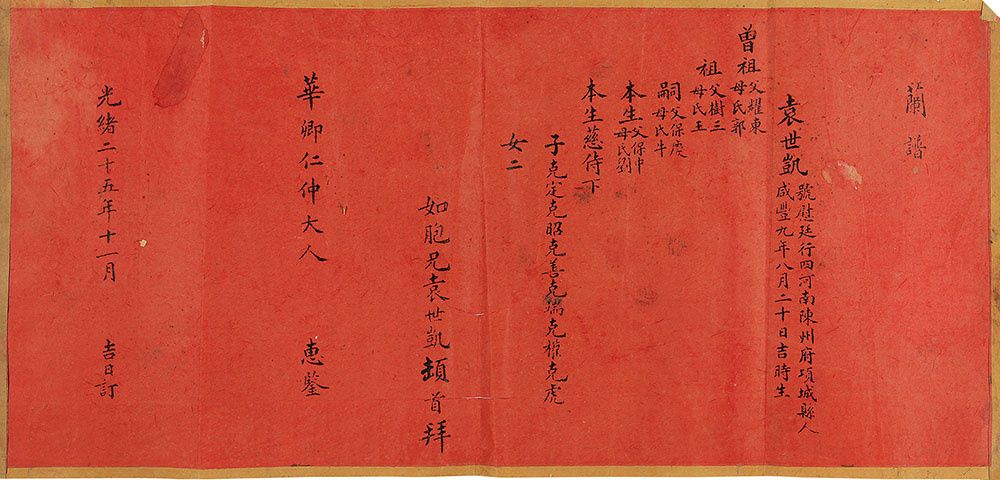 蘭譜
袁世凱 號慰廷行四河南陳州府項城縣人
咸豐九年八月二十日吉時生
曾祖 父耀東
母氏郭
祖 父樹三
母氏王
嗣 父保慶
母氏牛
本生 父保中
母氏劉
本生慈侍下
子克定克昭克善克端克權克虎
女二
如胞兄袁世凱頓首拜
華卿仁仲大人 惠鑒
光緒二十五年十一月 吉日訂